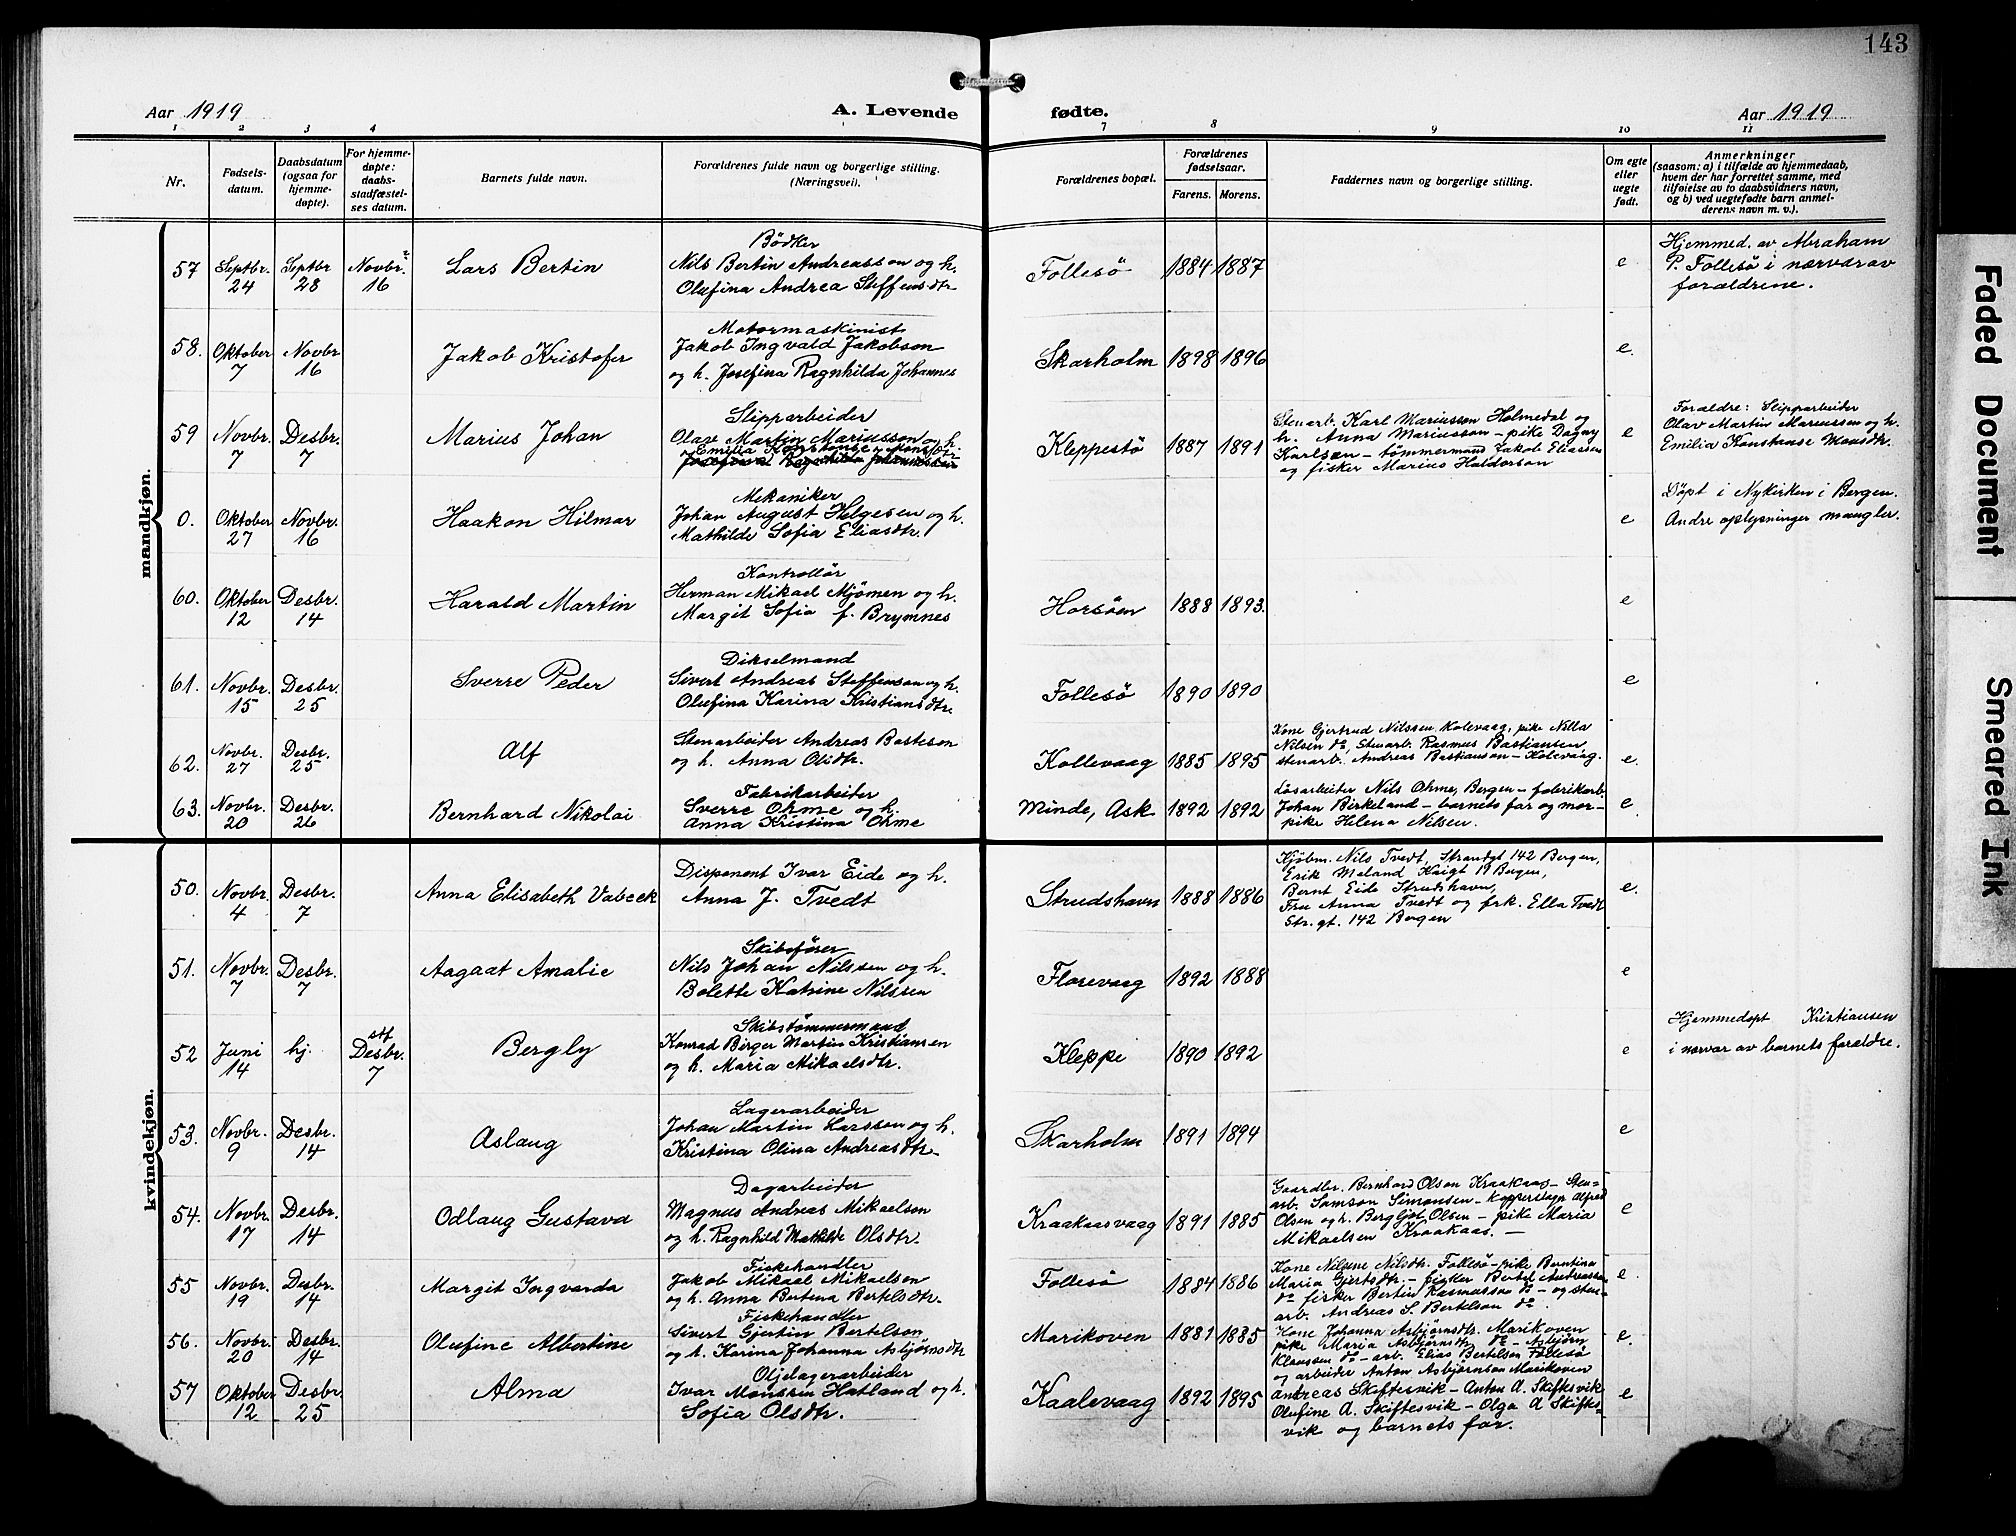 143
Aar 1919
A. Levende
fødte.
Aar 1919
1 2 3 4 7 8 9 10 11
Nr.
Fødsels-
datum.
Daabsdatum
(ogsaa for
hjemme-
døpte).
For hjemme-
døpte:
daabs-
stadfæstel-
ses datum.
Barnets fulde navn.
Forældrenes fulde navn og borgerlige stilling.
(Næringsvei).
Forældrenes bopæl.
Forældrenes
fødselsaar.
Farens. Morens.
Faddernes navn og borgerlige stilling.
Om egte
eller
uegte
født.
Anmerkninger
(saasom: a) i tilfælde av hjemmedaab,
hvem der har forrettet samme, med
tilføielse av to daabsvidners navn,
og b) ved uegtefødte barn anmel-
derens navn m. v.).
mandkjøn.
57 Septbr. 24 Septbr 28 Novbr. 16 Lars Bertin
Bödker
Nils Bertin Andreassen og h.
Olufina Andrea Steffensdtr
Follesö 1884 1887 e
Hjemmed. av Abraham
P. Follesö i nærvær av
forældrene.
58. Oktober 7 Novbr 16 Jakob Kristofer
Motormaskinist
Jakob Ingvald Jakobson
og h. Josefina Ragnhilda Johannes
Skarholm 1898 1896 e.
59 Novbr. 7 Desbr. 7 Marius Johan
Slipparbeider
Olav Martin Mariusson og h.
Emilia Konstanse Monsdtr
Kleppestö 1887 1891
Stenarb. Karl Mariusson Holmedal og
h. Anna Mariusson – pike Dagny
Karlsen – tömmermand Jakob Eliassen
og fisker Marius Haldorson
e
Forældre: Slipparbeider
Olav Martin Mariussen og h.
Emilia Konstanse Monsdtr.
0. Oktober 27 Novbr. 16 Haakon Hilmar
Mekaniker
Johan August Helgesen og h.
Mathilde Sofia Eliasdtr.
e
Döpt i Nykirken i Bergen.
Andre oplysninger mangler.
60. Oktober 12 Desbr. 14 Harald Martin
Kontrollör
Herman Mikael Mjömen og h.
Margit Sofia f. Brymnes
Horsöen 1888 1893. e
61. Novbr. 15 Desbr. 25 Sverre Peder
Dikselmand
Sivert Andreas Steffenson og h.
Olufina Karina Kristiansdtr.
Follesö 1890 1890 e
62. Novbr. 27 Desbr. 25 Alf
Stenarbeider Andreas Basteson
og h. Anna Olsdtr.
Kollevaag 1885 1895
Kone Gjertrud Nilssen, Kolevaag, pike Nilla
Nilsen do, Stenarb. Rasmus Bastiansen,
stenarb. Andreas Bastianson – Kolevaag.
e.
63. Novbr. 20 Desbr. 26 Bernhard Nikolai
Fabrikarbeider
Sverre Ohme og h.
Anna Kristina Ohme
Minde, Ask 1892 1892
Lösarbeider Nils Ohme, Bergen – fabrikarb
Johan Birkeland – barnets far og mor –
pike Helena Nilsen.
e
kvindekjøn.
50. Novbr. 4 Desbr. 7 Anna Elisabeth Vabeek
Disponent Ivar Eide og h.
Anna J. Tvedt
Strudshavn 1888 1886
Kjöbm. Nils Tvedt, Strandgt 142 Bergen,
Erik Meland Kaigt 19 Bergen,
Bernt Eide Strudshavn,
Fru Anna Tvedt og frk. Ella Tvedt
Str. gt. 142 Bergen
e.
51. Novbr. 7 Desbr. 7 Aagaat Amalie
Skibsförer
Nils Johan Nilssen og h.
Bolette Katrine Nilssen
Florevaag 1892 1888 e
52 Juni 14 hj. stf Desbr. 7 Bergly
Skibstömmermand
Konrad Birger Martin Kristiansen
og h. Maria Mikaelsdtr.
Kleppe 1890 1892 e
Hjemmedöpt Kristiansen
i nærvær av barnets forældre.
53. Novbr. 9 Desbr. 14 Aslaug
Lagerarbeider
Johan Martin Larssen og h.
Kristina Olina Andreasdtr.
Skarholm 1891 1894 e
54. Novbr. 17 Desbr. 14 Odlaug Gustava
Dagarbeider
Magnus Andreas Mikaelson
og h. Ragnhild Mathilde Olsdtr.
Kraakaasvaag 1891 1885
Gaardbr. Bernhard Olson Kraakaas – Sten-
arb. Samson Simonsen – kopperslagr Alfred
Olsen og h. Bergljot Olsen – pike Maria
Mikaelsen Kraakaas. –
e
55 Novbr. 19 Desbr. 14 Margit Ingvarda
Fiskehandler
Jakob Mikael Mikaelsen
og h. Anna Bertina Bertelsdtr.
Follesö 1884 1886
Kone Nilsine Nilsdtr. Follesö – pike Berntina
Maria Gjertsdtr. – fisker Bertel Andreassen
do fisker Bertin Rasmussen do – og sten-
arb. Andreas S. Bertelson do.
e.
56. Novbr. 20 Desbr. 14 Olufine Albertine
Fiskehandler
Sivert Gjertin Bertelson
og h. Karina Johanna Asbjørnsdtr
Marikoven 1881 1885
Kone Johanna Asbjörnsdtr. Marikoven
pike Maria Asbjörnsdtr do – Asbjörn
Klaussen do – arb. Elias Bertelsen Follesö
og arbeider Anton Asbjörnson Marikoven
e.
57 Oktober 12 Desbr. 25 Alma
Oljelagerarbeider
Ivar Monssen Hatland og h.
Sofia Olsdtr.
Kaalevaag 1892 1895
Andreas Skiftesvik – Anton A. Skiftesvik
Olufine A. Skiftesvik – Olga A Skiftes-
vik og barnets far.
e
Faded Document
Smeared Ink